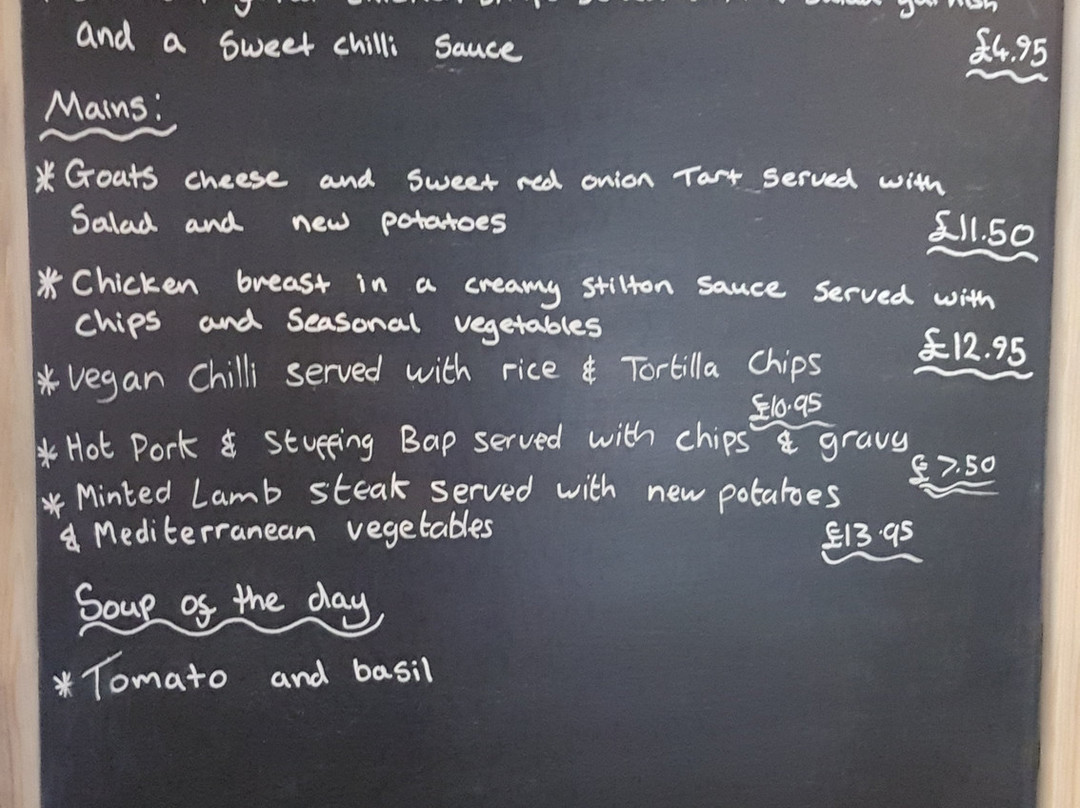 and a Sweet chilli Sauce £4.95
Mains:
* Goats cheese and Sweet red onion Tart Served with
Salad and new potatoes £11.50
* Chicken breast in a creamy Stilton Sauce Served with
chips and Seasonal vegetables £12.95
* vegan Chilli served with rice & Tortilla Chips
£10.95
* Hot Pork & Stuffing Bap served with chips & gravy
£7.50
* Minted Lamb steak served with new potatoes
& Mediterranean vegetables £13.95
Soup of the day
* Tomato and basil